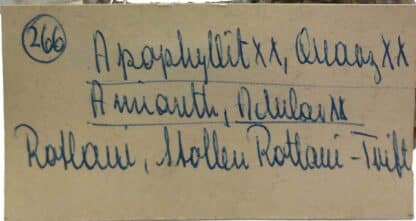 (266) Apophyllit xx, Quarz xx
Amianth, Adular xx
Rotlaui, Stollen Rotlaui - Trift